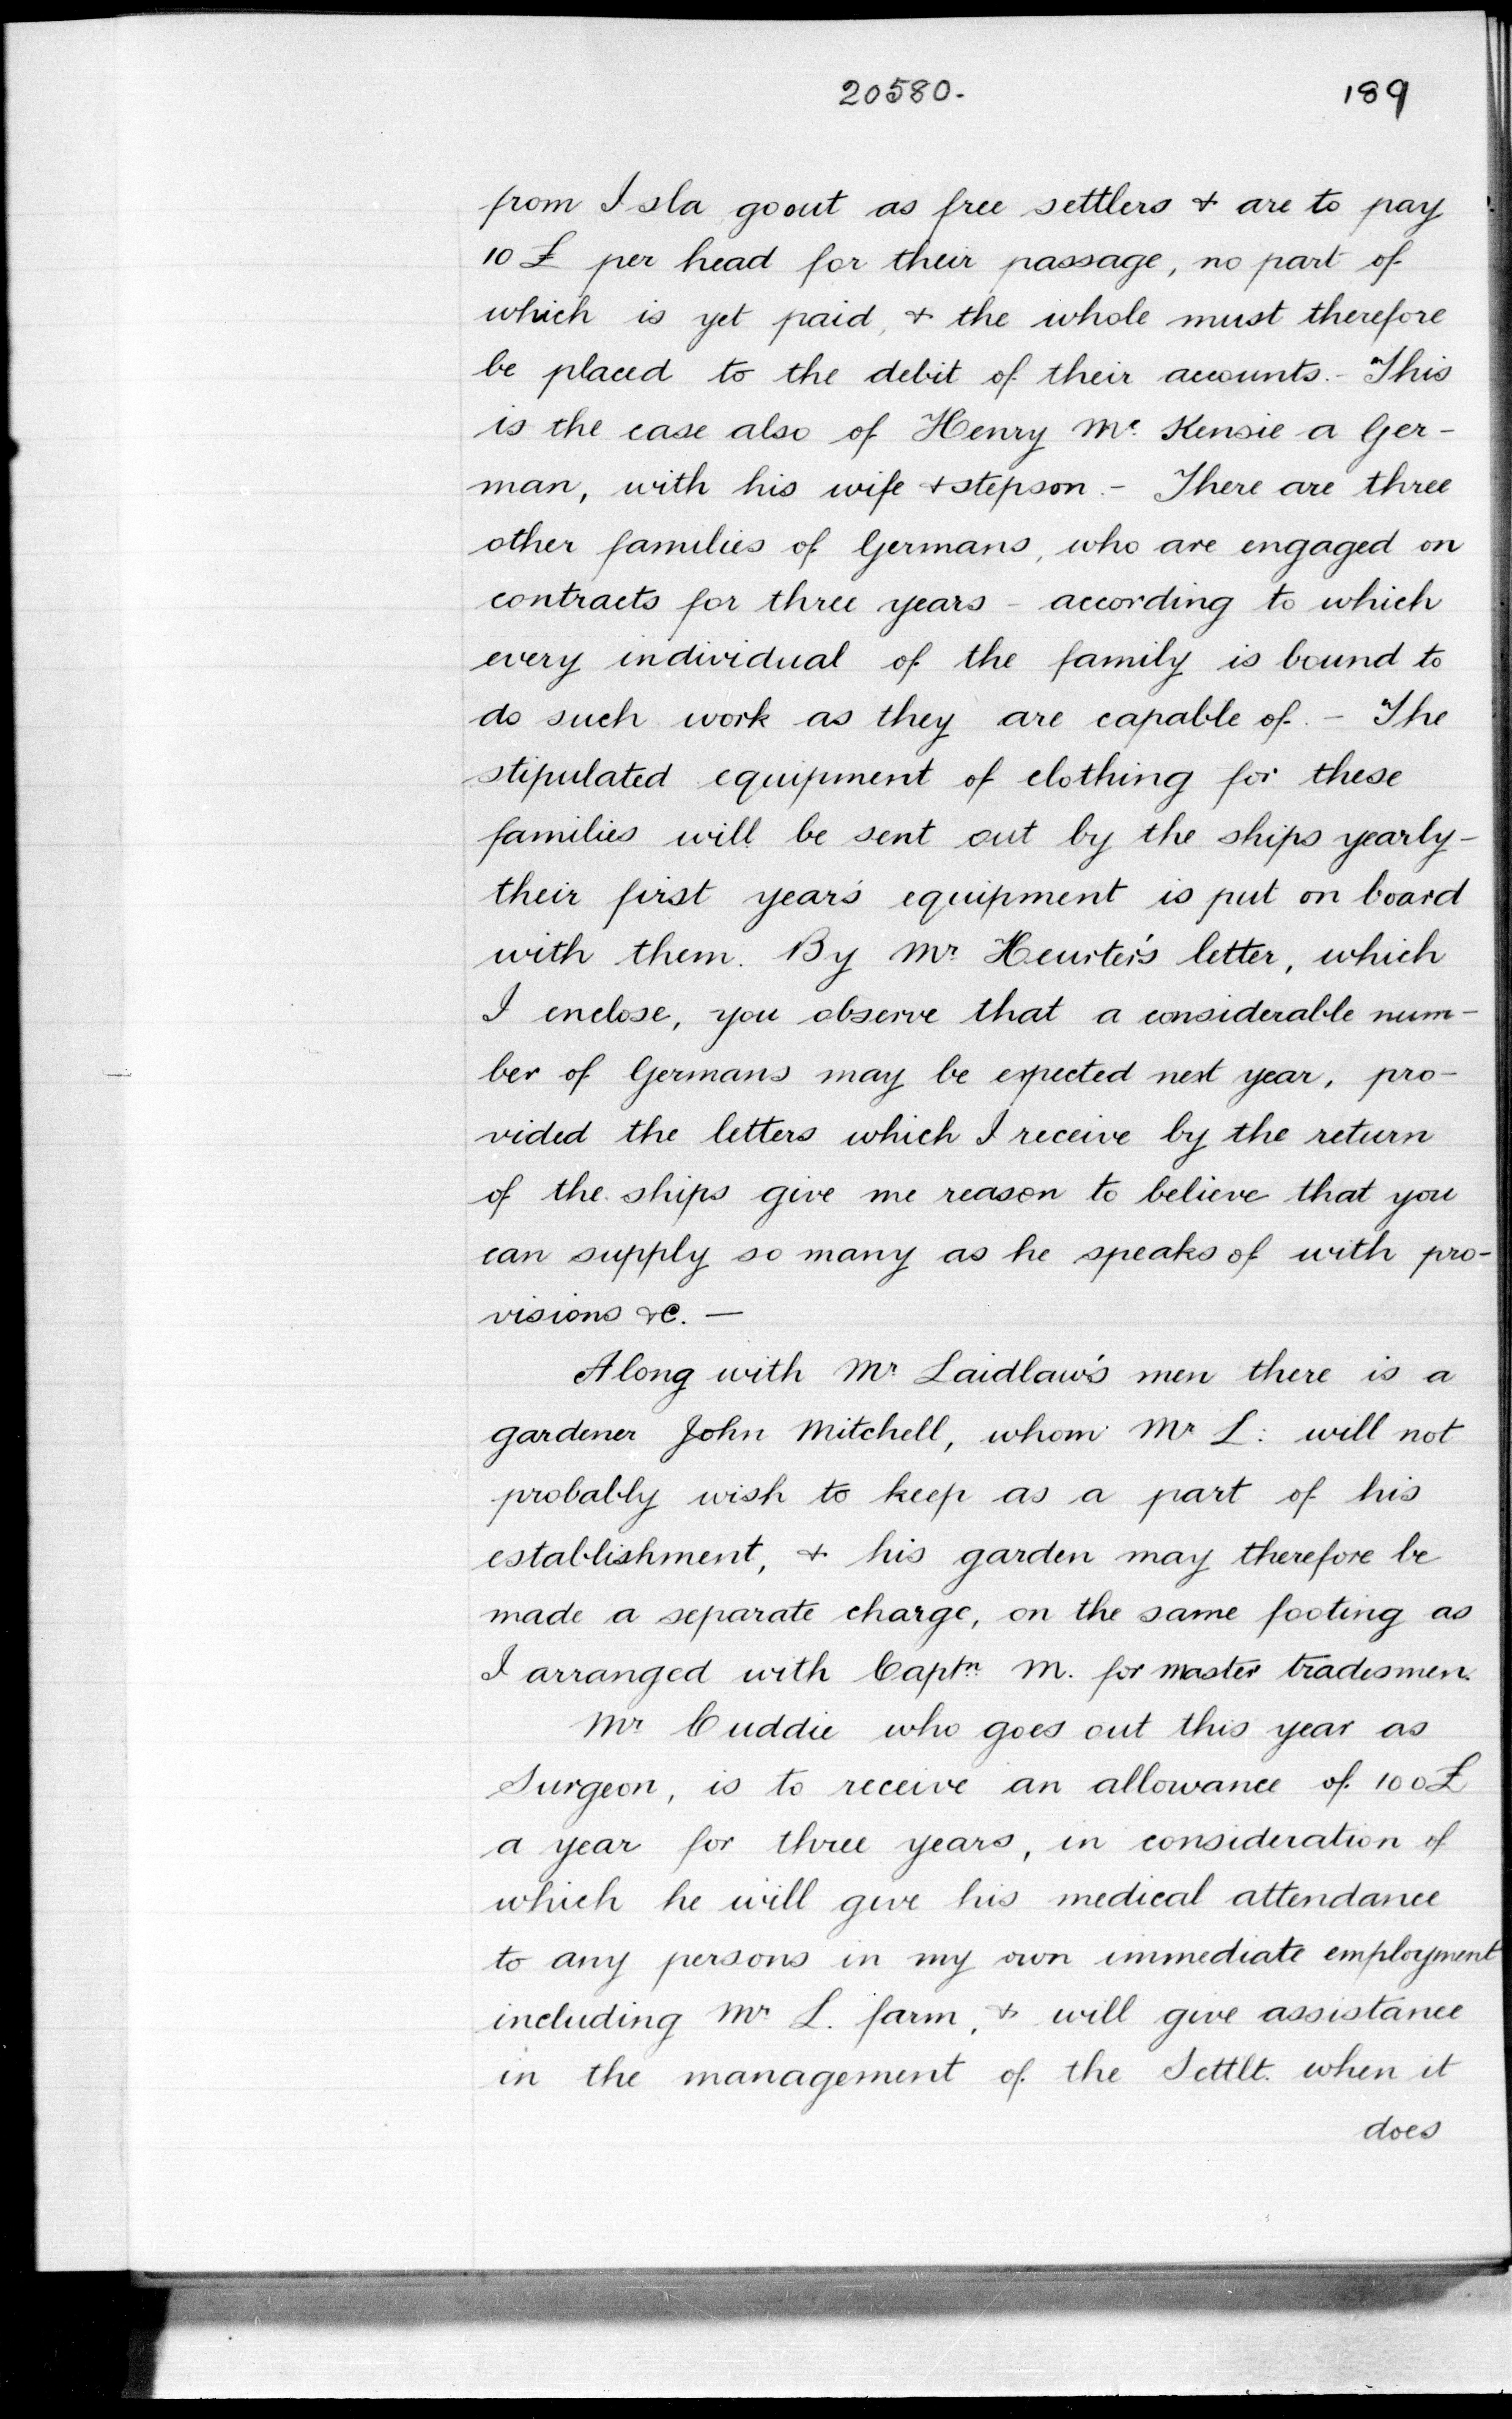 20580. 189
from Isla go out as free settlers & are to pay
10 £ per head for their passage, no part of
which is yet paid, & the whole must therefore
be placed to the debit of their accounts. - This
is the case also of Henry Mc Kensie a Ger-
man, with his wife & stepson. - There are three
other families of Germans, who are engaged on
contracts for three years - according to which
every individual of the family is bound to
do such work as they are capable of. - The
stipulated equipment of clothing for these
families will be sent out by the ships yearly -
their first year's equipment is put on board
with them. By Mr Heurter's letter, which
I enclose, you observe that a considerable num-
ber of Germans may be expected next year, pro-
vided the letters which I receive by the return
of the ships give me reason to believe that you
can supply so many as he speaks of with pro-
visions &c. —
Along with Mr Laidlaw's men there is a
gardener John Mitchell, whom Mr L: will not
probably wish to keep as a part of his
establishment, & his garden may therefore be
made a separate charge, on the same footing as
I arranged with Captn M. for master tradesmen.
Mr Cuddie who goes out this year as
Surgeon, is to receive an allowance of 100£
a year for three years, in consideration of
which he will give his medical attendance
to any persons in my own immediate employment
including Mr L. farm, & will give assistance
in the management of the Settlt. when it
does